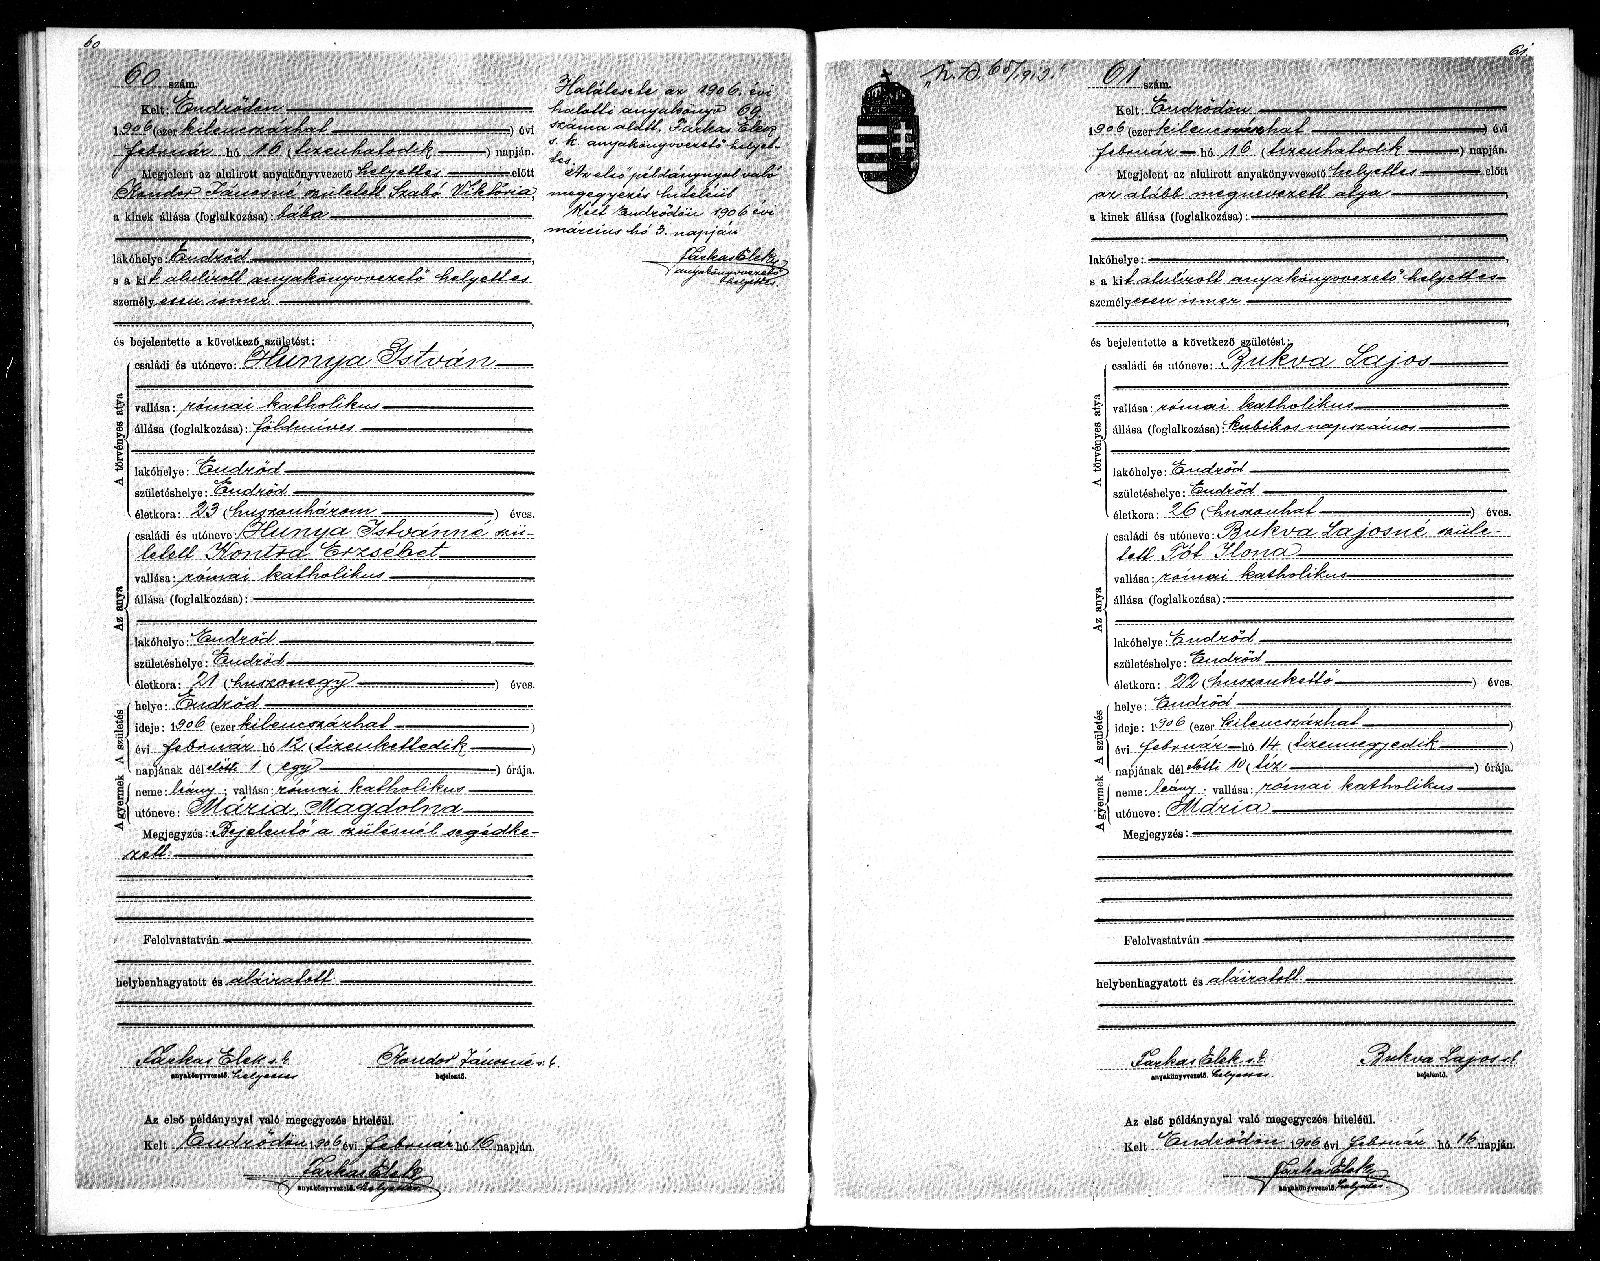 60
60 szám.
Kelt: Endrődön
1906 (ezer kilenczszázhat) évi
február hó 16 (tizenhatodik) napján.
Megjelent az alulirott anyakönyvvezető helyettes előtt
Kondor Jánosné született Szabó Viktória,
a kinek állása (foglalkozása): bába
lakóhelye: Endrőd
s a kit alulirott anyakönyvvezető helyettes
személyesen ismer
és bejelentette a következő születést:
A törvényes atya
családi és utóneve: Hunya István
vallása: római katholikus
állása (foglalkozása): földmives
lakóhelye: Endrőd
születéshelye: Endrőd
életkora: 23 (huszonhárom) éves.
Az anya
családi és utóneve: Hunya Istvánné szü-
letett Kontra Erzsébet
vallása: római katholikus
állása (foglalkozása):
lakóhelye: Endrőd
születéshelye: Endrőd
életkora: 21 (huszonegy) éves.
A születés
helye: Endrőd
ideje: 1906 (ezer kilenczszázhat)
évi február hó 12 (tizenkettedik)
napjának délelőtti 1 (egy) órája.
A gyermek
neme: leány; vallása: római katholikus
utóneve: Mária Magdolna
Megjegyzés: Bejelentő a szülésnél segédke-
zett.
Felolvastatván
helybenhagyatott és aláiratott
Farkas Elek s.k. Kondor Jánosné s.k.
anyakönyvvezető helyettes bejelentő.
Az első példánynyal való megegyezés hiteléül.
Kelt Endrődön 1906 évi február hó 16 napján.
Farkas Elek
anyakönyvvezető helyettes
Halálesete az 1906. évi
halotti anyakönyv 69
száma alatt. Farkas Elek
s. k. anyakönyvvezető helyet-
tes.
Az első példánynyal való
megegyezés hiteléül
Kelt Endrődön 1906 évi
március hó 3. napján
Farkas Elek
anyakönyvvezető
helyettes
61
61 szám.
Kelt: Endrődön
1906 (ezer kilenczszázhat) évi
február hó 16 (tizenhatodik) napján.
Megjelent az alulirott anyakönyvvezető helyettes előtt
az alább megnevezett atya
a kinek állása (foglalkozása):
lakóhelye:
s a kit alulirott anyakönyvvezető helyettes
személyesen ismer
és bejelentette a következő születést:
A törvényes atya
családi és utóneve: Bukva Lajos
vallása: római katholikus
állása (foglalkozása): kubikos napszámos
lakóhelye: Endrőd
születéshelye: Endrőd
életkora: 26 (huszonhat) éves.
Az anya
családi és utóneve: Bukva Lajosné szüle-
tett Tót Ilona
vallása: római katholikus
állása (foglalkozása):
lakóhelye: Endrőd
születéshelye: Endrőd
életkora: 22 (huszonkettő) éves.
A születés
helye: Endrőd
ideje: 1906 (ezer kilenczszázhat)
évi február hó 14 (tizennegyedik)
napjának délelőtti 10 (tíz) órája.
A gyermek
neme: leány; vallása: római katholikus
utóneve: Mária
Megjegyzés:
Felolvastatván
helybenhagyatott és aláiratott
Farkas Elek s.k. Bukva Lajos s.k.
anyakönyvvezető helyettes bejelentő.
Az első példánynyal való megegyezés hiteléül.
Kelt Endrődön 1906 évi február hó 16 napján.
Farkas Elek
anyakönyvvezető helyettes